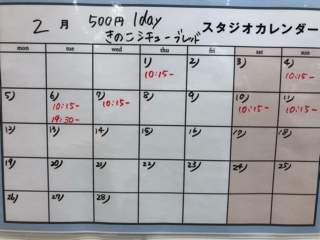 2 月 500円 1day スタジオカレンダー
きのこシチューブレッド
mon tue wed thu fri sat sun
1) 2) 3) 4)
10:15~ 10:15~
5) 6) 7) 8) 9) 10) 11)
10:15~ 10:15~ 10:15~ 10:15~
19:30~
12) 13) 14) 15) 16) 17) 18)
19) 20) 21) 22) 23) 24) 25)
26) 27) 28)